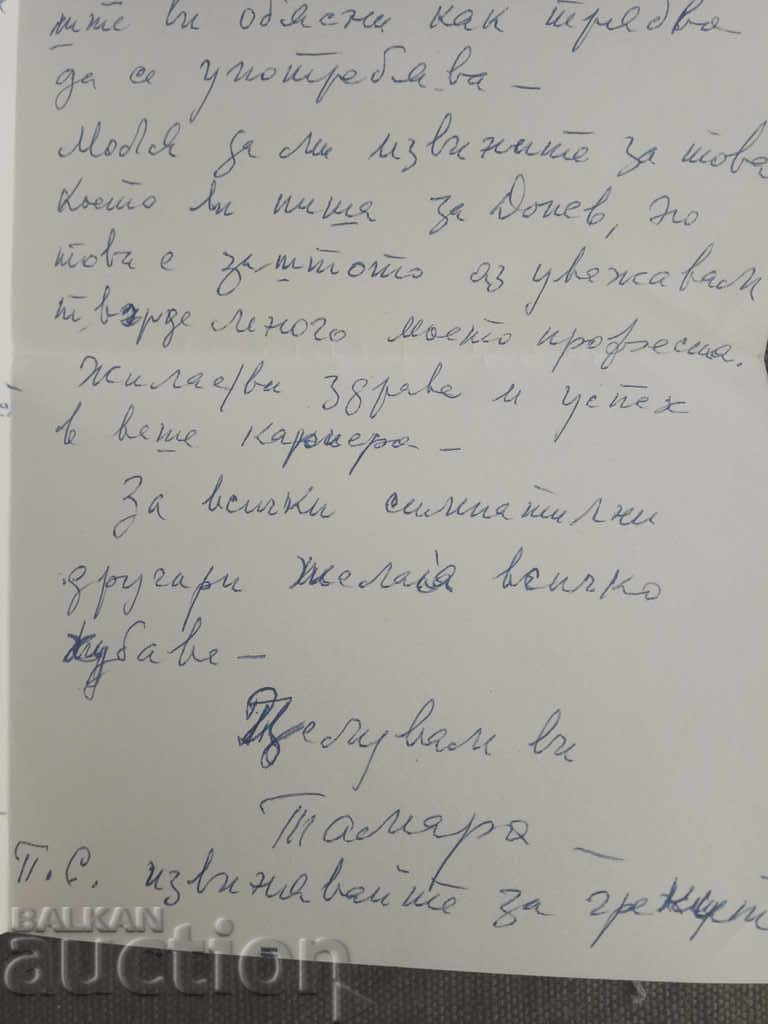 ште ви обясни как трябва
да се употребява –
Моля да ми извините за това
което ви пиша за Донев, но
това е за штото аз уважавам
твърде много моето професиа.
Жилае/ви здраве и успех
в ваше кариера –
За всички симпатични
другари желаia всичко
хубаве –
Целувам ви
Тамара –
П.С. извинявайте за
BALKAN
auction